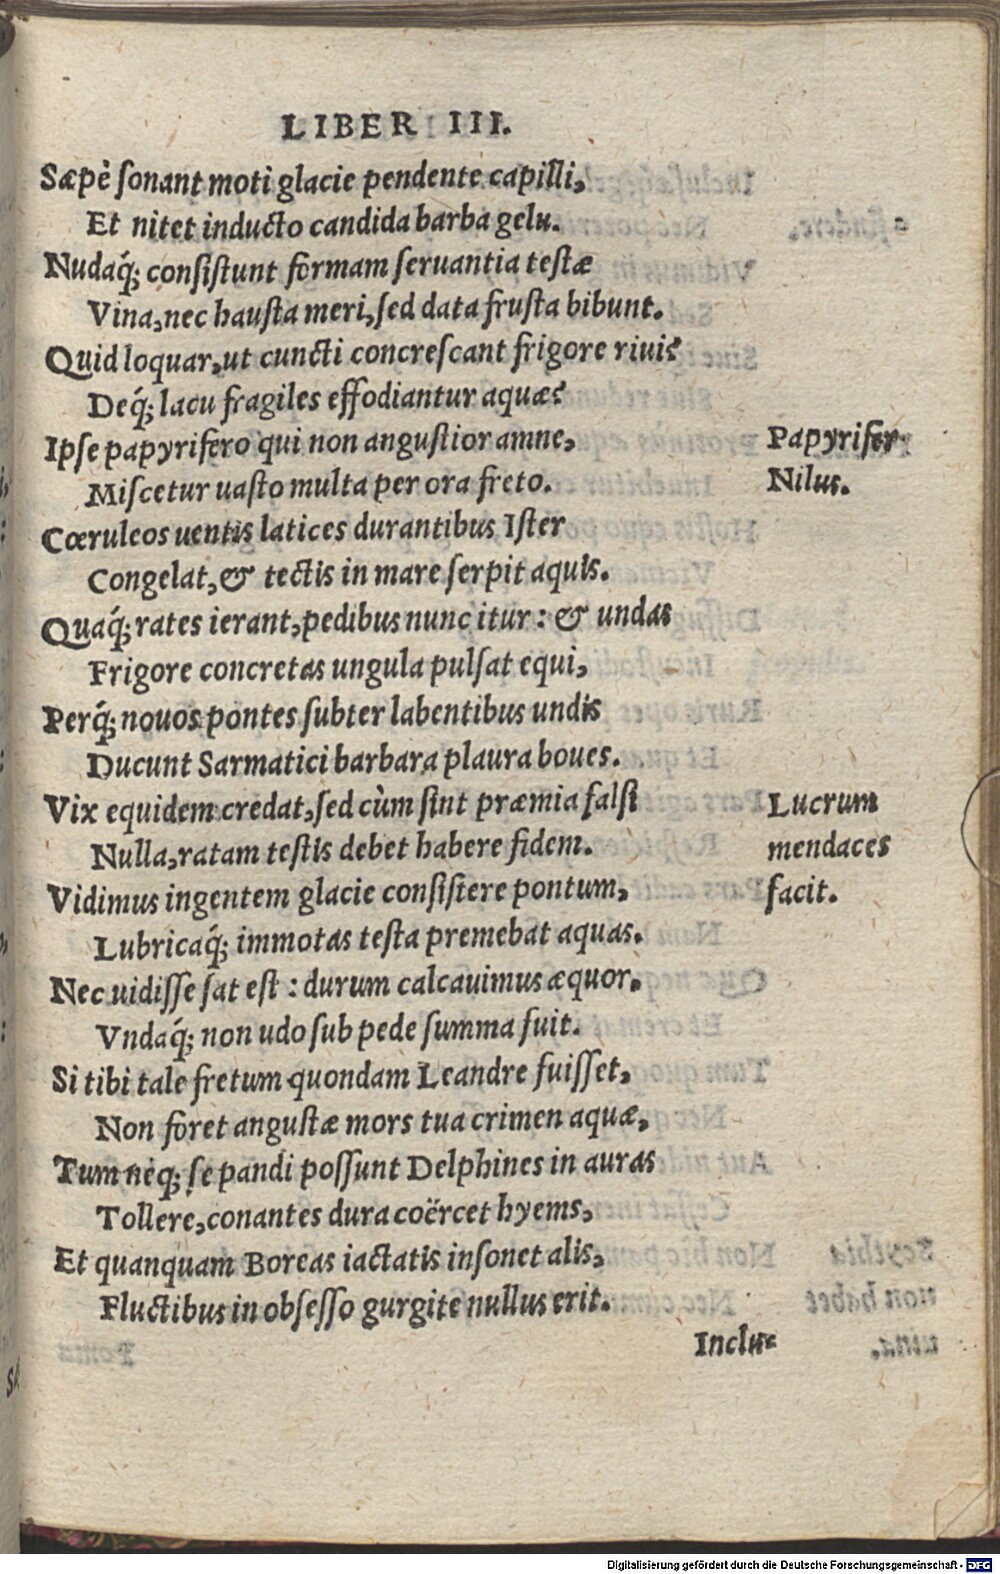 LIBER III.
Sæpè ſonant moti glacie pendente capilli,
Et nitet inducto candida barba gelu.
Nudaq́; conſiſtunt formam ſeruantia teſtæ
Vina, nec hauſta meri, ſed data fruſta bibunt.
Quid loquar, ut cuncti concreſcant frigore riui?
Deq́; lacu fragiles effodiantur aquæ?
Ipſe papyrifero qui non anguſtior amne,
Papyrifer
Miſcetur uaſto multa per ora freto.
Nilus.
Cœruleos uentis latices durantibus Iſter
Congelat, & tectis in mare ſerpit aquis.
Quaq́; rates ierant, pedibus nunc itur: & undas
Frigore concretas ungula pulſat equi,
Perq́; nouos pontes ſubter labentibus undis
Ducunt Sarmatici barbara plaura boues.
Vix equidem credat, ſed cùm ſint præmia falſi
Lucrum
Nulla, ratam teſtis debet habere fidem.
mendaces
Vidimus ingentem glacie conſiſtere pontum,
facit.
Lubricaq́; immotas teſta premebat aquas.
Nec uidiſſe ſat eſt: durum calcauimus æquor,
Vndaq́; non udo ſub pede ſumma fuit.
Si tibi tale fretum quondam Leandre fuiſſet,
Non foret anguſtæ mors tua crimen aquæ,
Tum neq; ſe pandi poſſunt Delphines in auras
Tollere, conantes dura coërcet hyems,
Et quanquam Boreas iactatis inſonet alis,
Fluctibus in obſeſſo gurgite nullus erit.
Inclu=
Digitalisierung gefördert durch die Deutsche Forschungsgemeinschaft - DFG